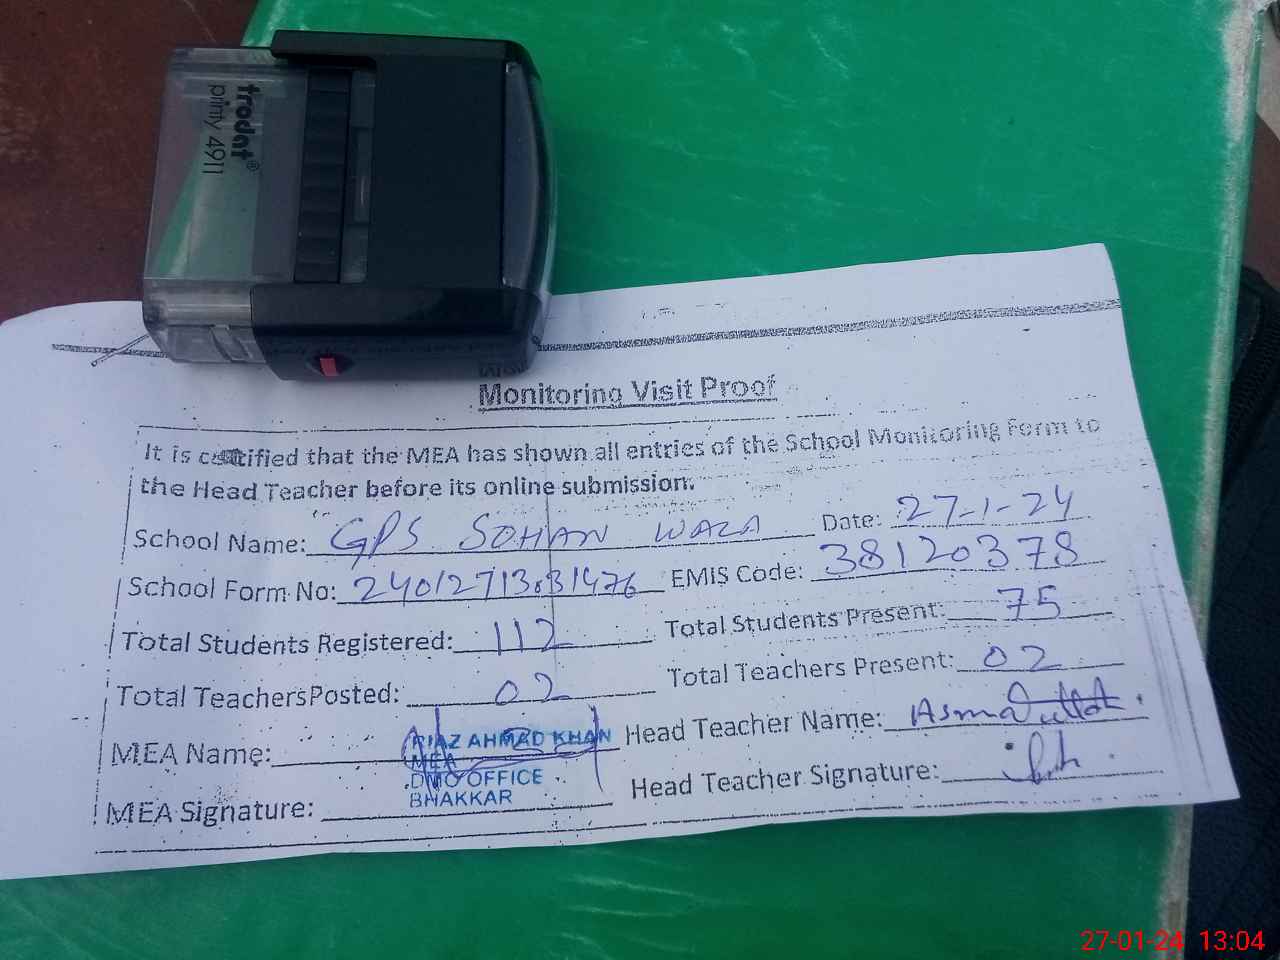 trodat®
printy 4911
Monitoring Visit Proof
It is certified that the MEA has shown all entries of the School Monitoring Form to
the Head Teacher before its online submission.
School Name: GPS SOHAN WALA Date: 27-1-24
School Form No: 240127130831476 EMIS Code: 38120378
Total Students Registered: 112 Total Students Present: 75
Total Teachers Posted: 02 Total Teachers Present: 02
MEA Name: RIAZ AHMAD KHAN Head Teacher Name: Asmatullah
MEA
DMO OFFICE
BHAKKAR
MEA Signature: Head Teacher Signature:
27-01-24 13:04